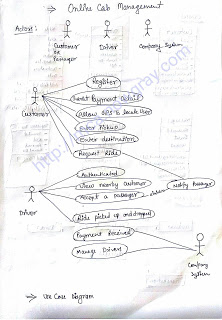 → Online Cab Management
Actors:
Customer
or
Passenger
Driver
Company System
Register
Submit Payment details
Allow GPS to locate User
Enter Pickup
Enter destination
Request Ride
Customer
Authenticated
View nearby customer
Accept a passenger
Notify Passenger
Driver
Rider picked up and dropped
Payment Received
Manage Drivers
Company
System
→ Use Case Diagram